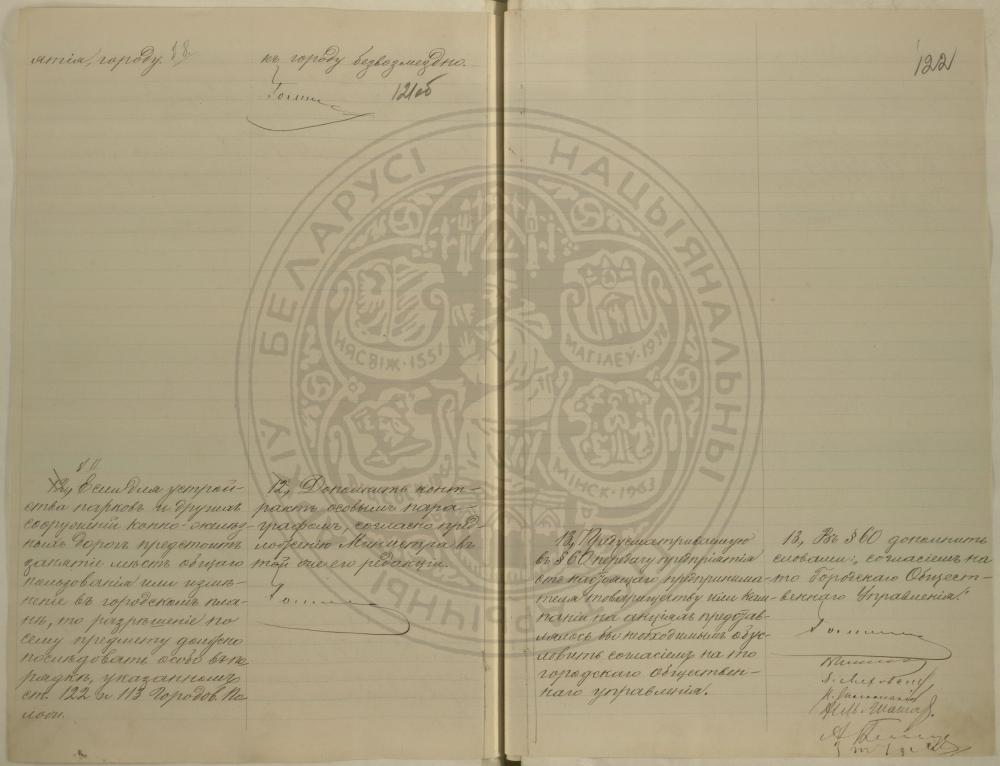 ятія, городу.
къ городу безвозмездно.
121об
122
§ 11
12, Если для устрой-
ства парковъ и другихъ
сооруженій конно-желѣз-
ныхъ дорогъ предстоитъ
занятіе мѣстъ общаго
пользованія или измѣ-
неніе въ городскомъ пла-
нѣ, то разрѣшеніе по
сему предмету должно
послѣдовать особо въ по-
рядкѣ, указанномъ
ст. 122 и 113 Городов. По-
лож.
12, Дополнить конт-
рактъ особымъ пара-
графомъ, согласно пред-
ложенію Министра въ
той же его редакціи.
13, Предусматриваемую
въ § 60 передачу предпріятія
отъ настоящаго предпринима-
теля товариществу или ком-
паніи на акціяхъ представ-
лялось бы необходимымъ обус-
ловить согласіемъ на то
городскаго обществен-
наго управленія.
13, Въ § 60 дополнить
словами: "согласіемъ на
то Городскаго Общест-
веннаго Управленія."
КІЎ БЕЛАРУСІ НАЦЫЯНАЛЬНЫ
НЯСВІЖ·1551
МАГІЛЕЎ·19
МІНСК·1963